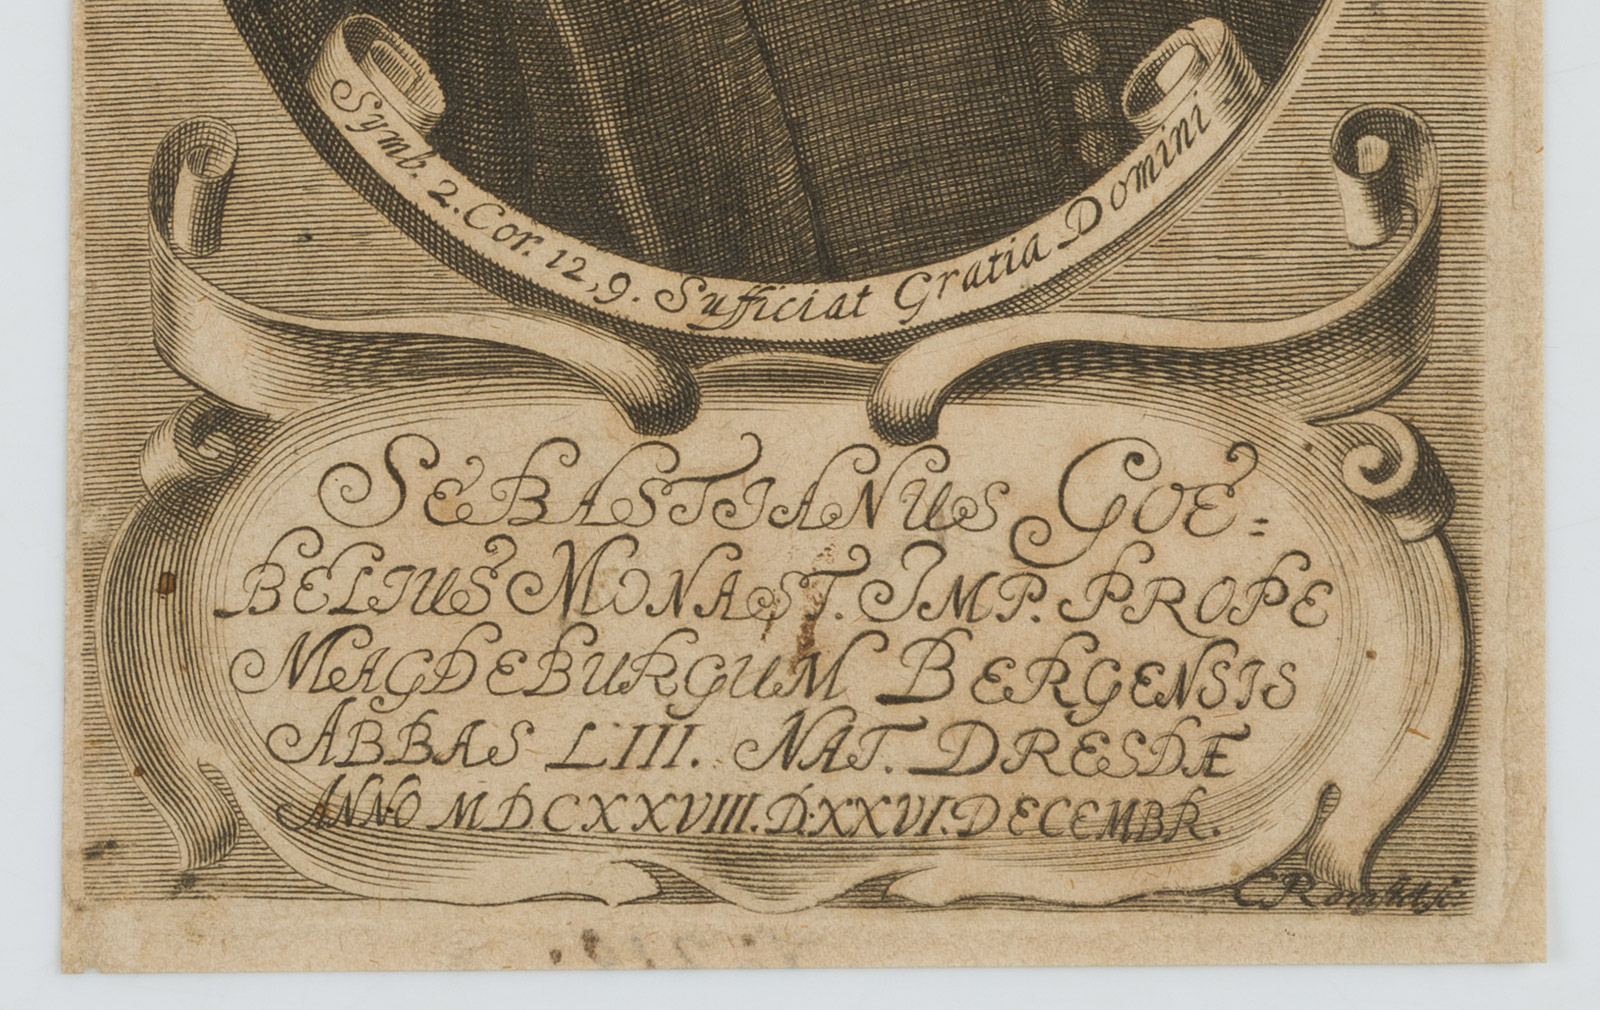 Symb. 2. Cor. 12, 9. Sufficiat Gratia Domini
SEBASTIANUS GOE=
BELIUS MONAST. IMP. PROPE
MAGDEBURGUM BERGENSIS
ABBAS LIII. NAT. DRESDÆ
ANNO MDCXXVIII. D: XXVI. DECEMBR.